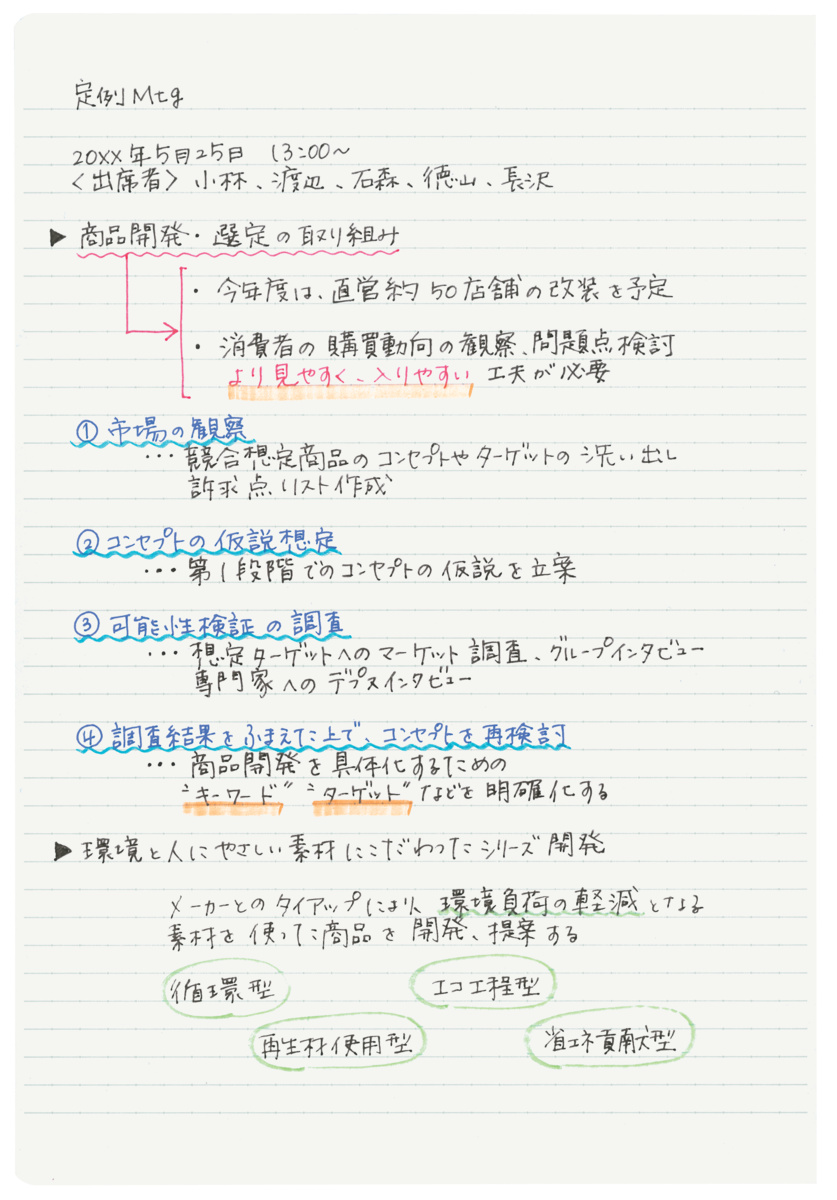 定例Mtg
20XX年5月25日 13:00〜
〈出席者〉小林、渡辺、石森、徳山、長沢
▶ 商品開発・選定の取り組み
・今年度は、直営約50店舗の改装を予定
・消費者の購買動向の観察、問題点検討
より見やすく、入りやすい 工夫が必要
① 市場の観察
・・・競合想定商品のコンセプトやターゲットの洗い出し
訴求点リスト作成
② コンセプトの仮説想定
・・・第1段階でのコンセプトの仮説を立案
③ 可能性検証の調査
・・・想定ターゲットへのマーケット調査、グループインタビュー
専門家へのデプスインタビュー
④ 調査結果をふまえた上で、コンセプトを再検討
・・・商品開発を具体化するための
"キーワード" "ターゲット"などを明確化する
▶ 環境と人にやさしい素材にこだわったシリーズ開発
メーカーとのタイアップにより、環境負荷の軽減となる
素材を使った商品を開発、提案する
循環型 エコ工程型
再生材使用型 省エネ貢献型